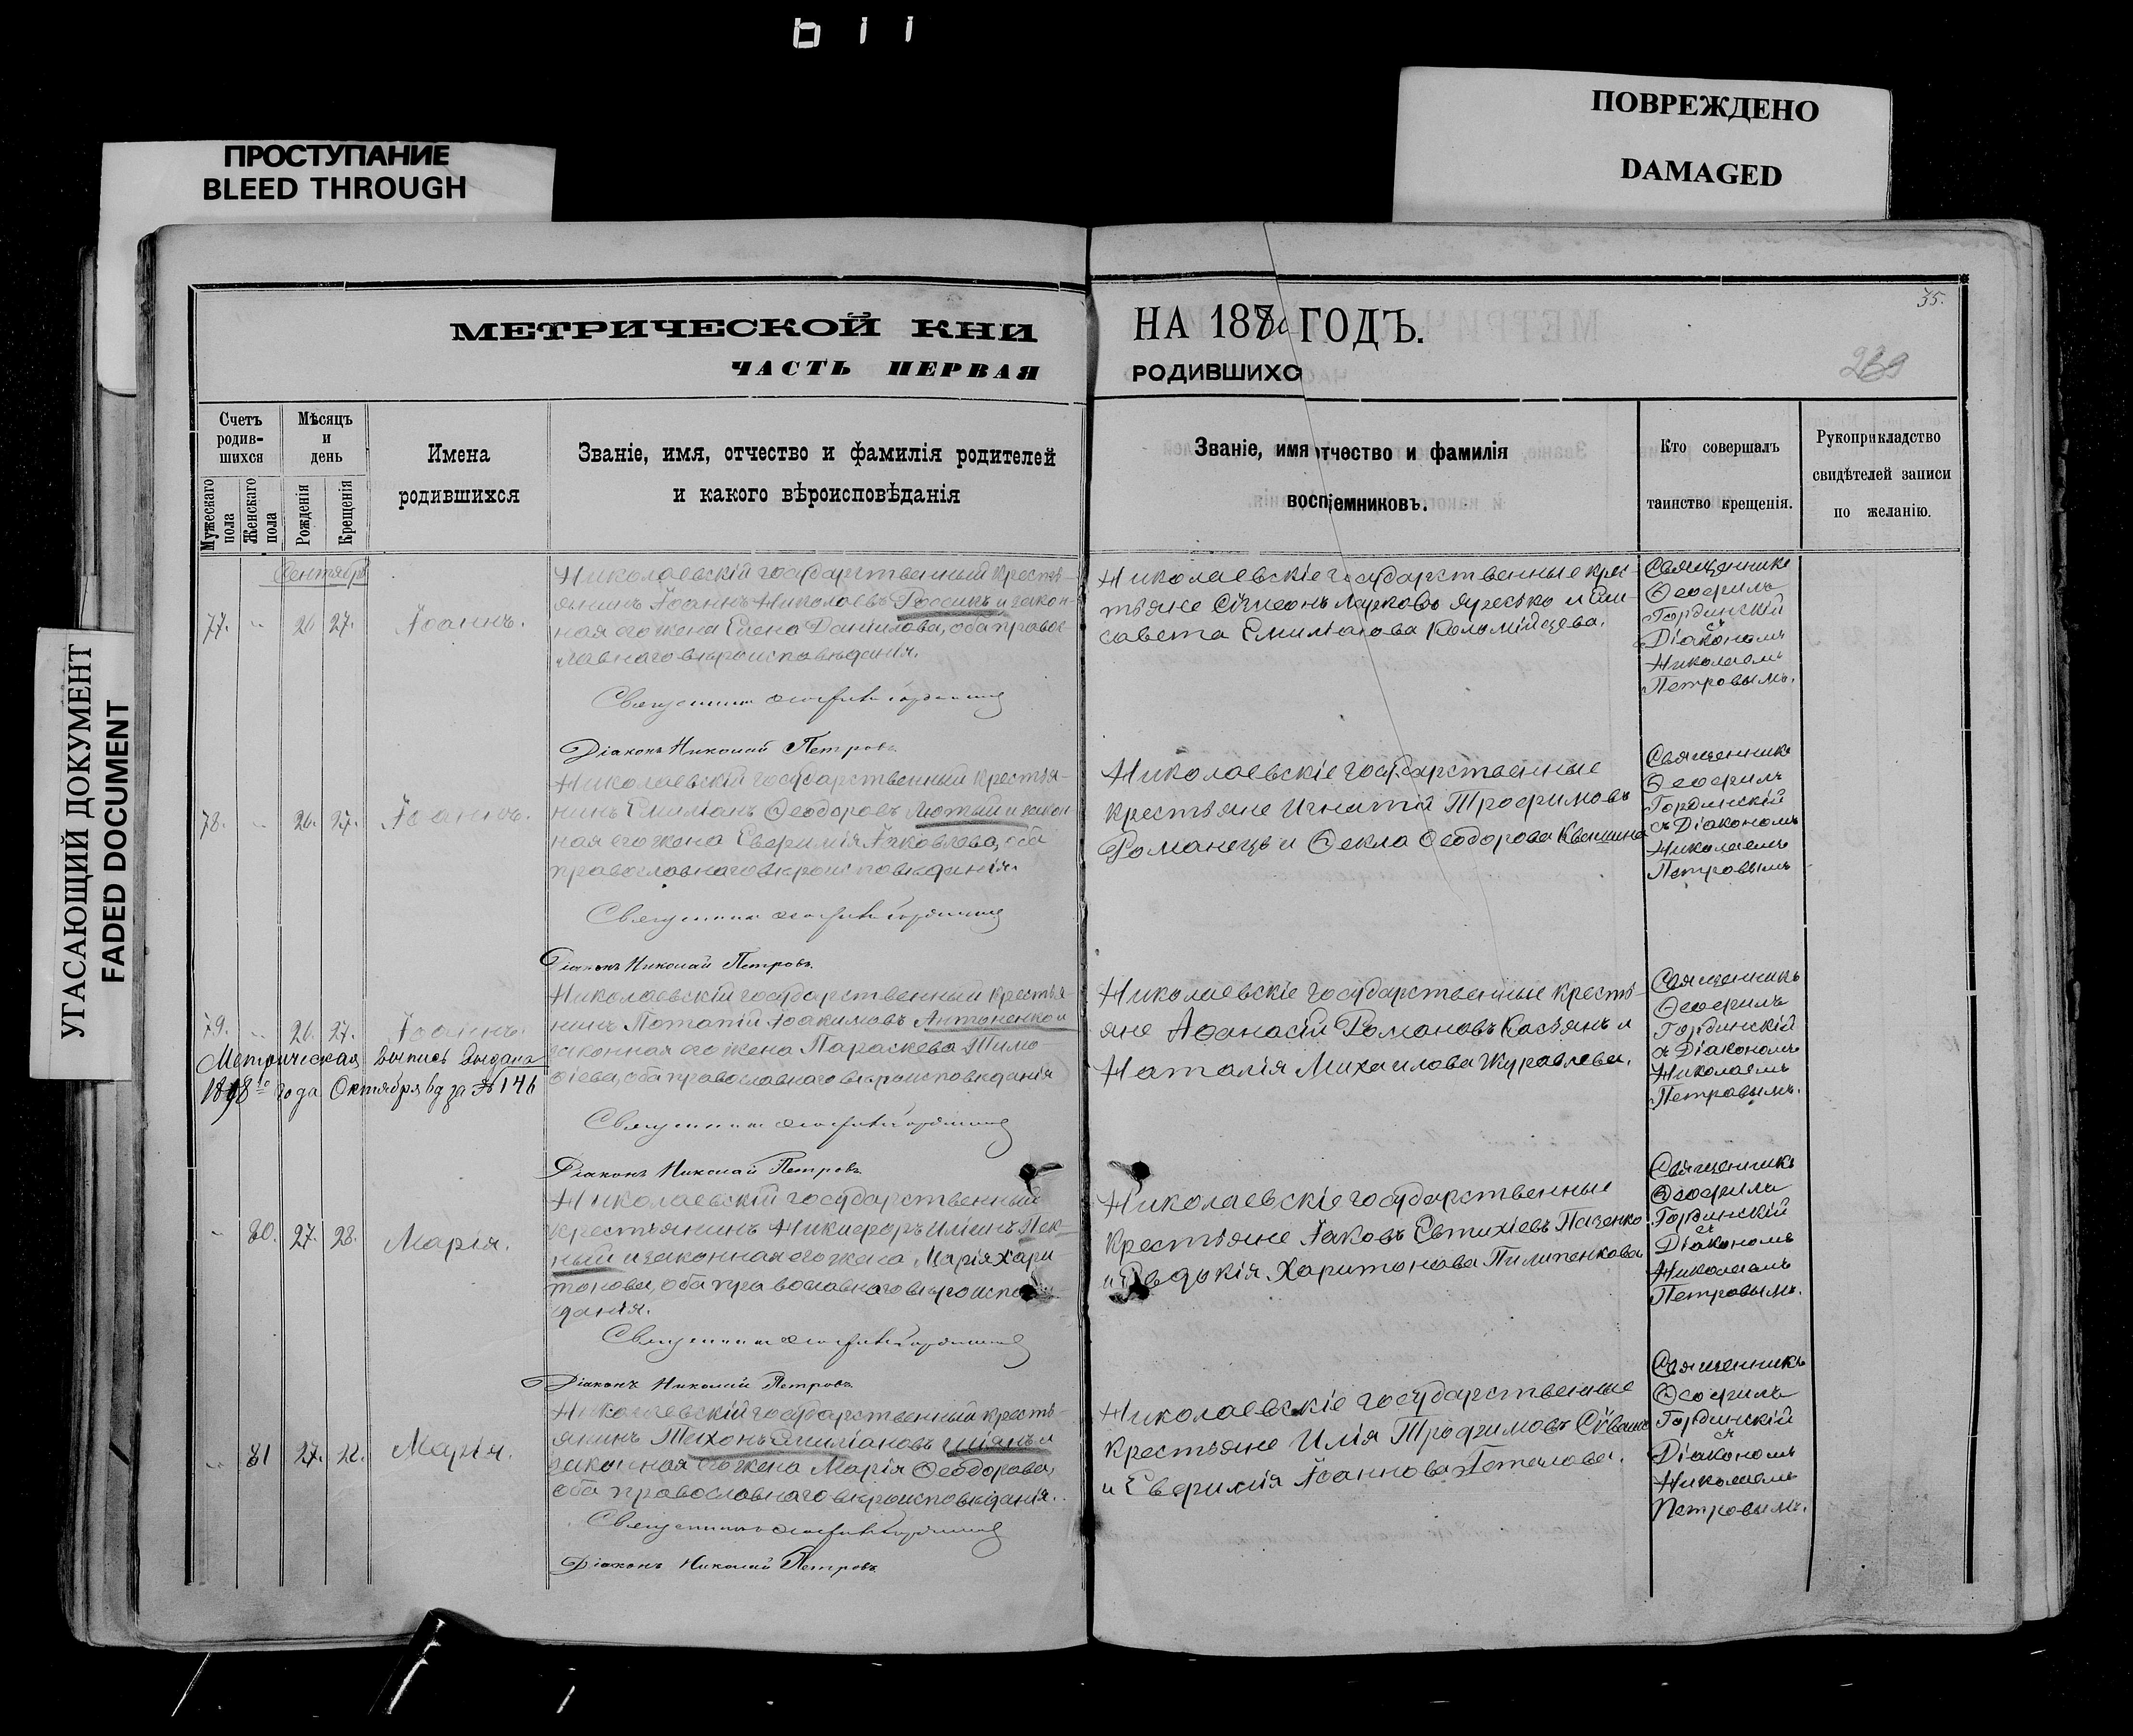 ПРОСТУПАНИЕ
BLEED THROUGH
ПОВРЕЖДЕНО
DAMAGED
УГАСАЮЩИЙ ДОКУМЕНТ
FADED DOCUMENT
35.
МЕТРИЧЕСКОЙ КНИ
ЧАСТЬ ПЕРВАЯ
НА 1878 ГОДЪ.
РОДИВШИХС
Счетъ родив-шихся
Мужескаго пола
Женскаго пола
Мѣсяцъ и день
Рожденія
Крещенія
Имена родившихся
Званіе, имя, отчество и фамилія родителей
и какого вѣроисповѣданія
Званіе, имя отчество и фамилія
воспріемниковъ.
Кто совершалъ
таинство крещенія.
Рукоприкладство
свидѣтелей записи
по желанію.
Сентябрь
77. 26 27. Іоаннъ.
Николаевскій государственный кресть-
янинъ Іоаннъ Николаевъ и закон-
ная его жена Елена Даніилова, оба правос-
лавнаго вѣроисповѣданія.
Діаконъ Николай Петровъ
Николаевскіе государственные крес-
тьяне Сѵмеонъ Марковъ Яресько и Ели-
савета Емиліанова Коломійцева.
Священникъ
Ѳеофилъ
Гординскій
съ
Діакономъ
Николаемъ
Петровымъ.
78. 26. 27. Іоаннъ.
Николаевскій государственный крестья-
нинъ Емиліанъ Ѳеодоровъ Лютый и закон
ная его жена Евфимія Іаковлева, оба
православнаго вѣроисповѣданія.
Діаконъ Николай Петровъ
Николаевскіе государственные
крестьяне Игнатій Трофимовъ
Романецъ и Ѳекла Ѳеодорова
Священникъ
Ѳеофилъ
Гординскій
съ Діакономъ
Николаемъ
Петровымъ
79. 26. 27. Іоаннъ.
Метрическая выпись выдана
1898 года Октября за № 146
Николаевскій государственный крестья-
нинъ Потапій Іоакимовъ Антоненко и
законная его жена Параскева Тимо
ѳіева, оба православнаго вѣроисповѣданія
Діаконъ Николай Петровъ
Николаевскіе государственные кресть-
яне Аѳанасій Романовъ Касьянъ и
Наталія Михаилова Журавлева.
Священникъ
Ѳеофилъ
Гординскій
съ Діакономъ
Николаемъ
Петровымъ.
80. 27. 28. Марія.
Николаевскій государственный
крестьянинъ Никифоръ Илиинъ Пек-
ный и законная его жена Марія Хари-
тонова, оба православнаго вѣроиспо
данія.
Діаконъ Николай Петровъ
Николаевскіе государственные
крестьяне Іаковъ Евтихіевъ Паченко
и Евдокія Харитонова Пилипенкова
Священникъ
Ѳеофилъ
Гординскій
съ
Діакономъ
Николаемъ
Петровымъ.
81 27. Марія.
Николаевскій государственный кресть-
янинъ Тихонъ Емиліановъ и
законная его жена Марія Ѳеодорова,
оба православнаго вѣроисповѣданія.
Діаконъ Николай Петровъ
Николаевскіе государственные
крестьяне Илія Трофимовъ
и Евфимія Іоаннова
Священникъ
Ѳеофилъ
Гординскій
съ
Діакономъ
Николаемъ
Петровымъ.